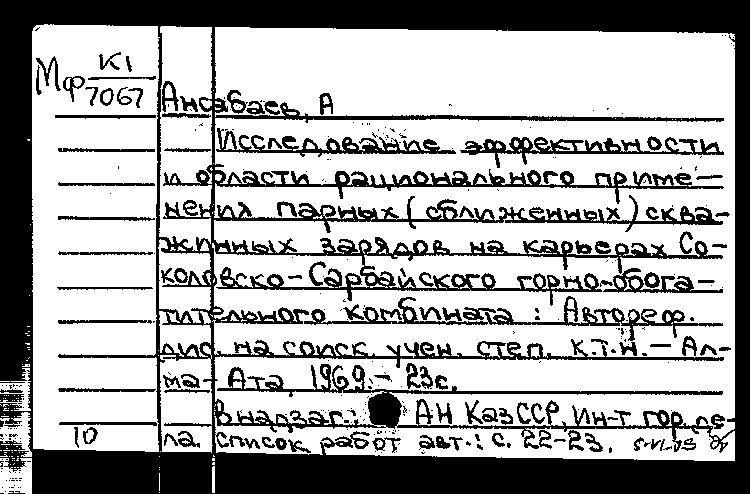 Мф К1
7067
Ансабаев, А
Исследование эффективности
и области рационального приме-
нения парных (сближенных) сква-
жинных зарядов на карьерах Со-
коловско-Сарбайского горно-обога-
тительного комбината : Автореф.
дис. на соиск. учен. степ. к.т.н. - Ал-
ма-Ата, 1969. - 23с.
В надзаг.: АН КазССР, Ин-т гор. де-
10 ла. Список работ авт.: с. 22-23.